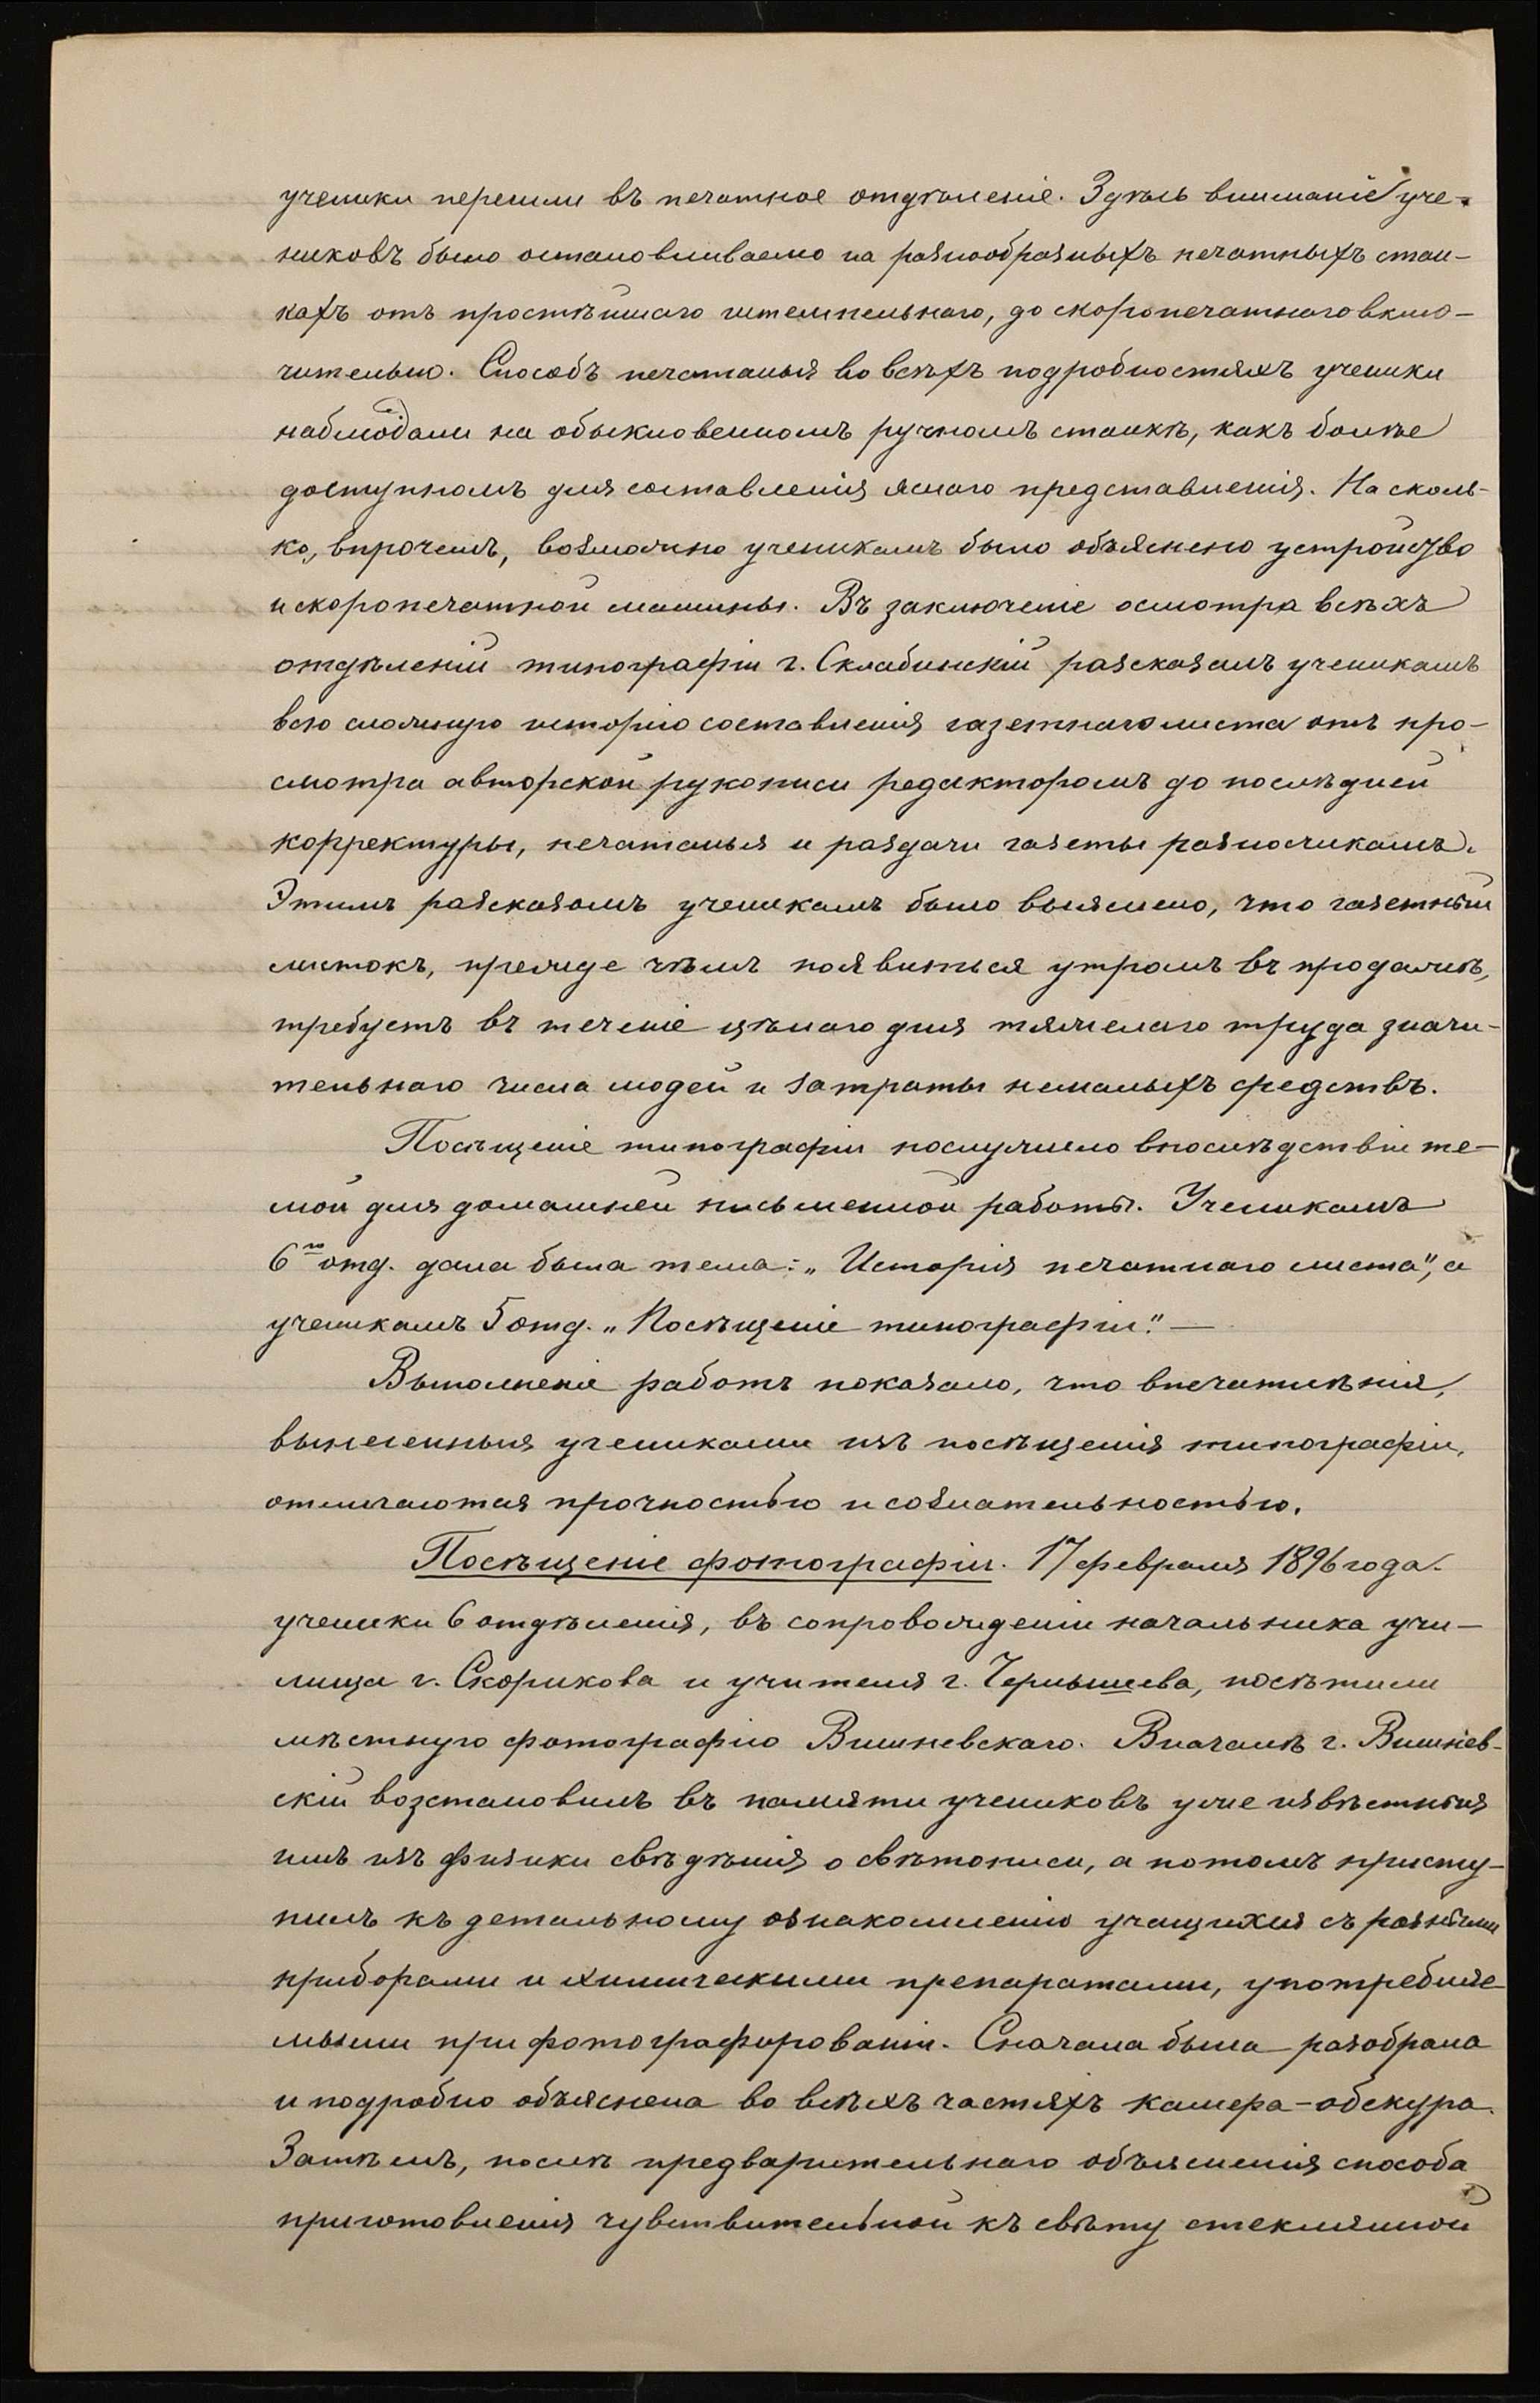 ученики перешли въ печатное отдѣленіе. Здѣсь вниманіе уче-
никовъ было останавливаемо на разнообразныхъ печатныхъ стан-
кахъ отъ простѣйшаго штемпельнаго, до скоропечатнаго вклю-
чительно. Способъ печатанья во всѣхъ подробностяхъ ученики
наблюдали на обыкновенномъ ручномъ станкѣ, какъ болѣе
доступномъ для составленія яснаго представленія. На сколь-
ко, впрочемъ, возможно ученикамъ было объяснено устройство
и скоропечатной машины. Въ заключеніе осмотра всѣхъ
отдѣленій типографіи г. Склабинскій разсказалъ ученикамъ
всю сложную исторію составленія газетнаго листа отъ про-
смотра авторской рукописи редакторомъ до послѣдней
корректуры, печатанья и раздачи газеты разносчикамъ.
Этимъ разсказомъ ученикамъ было выяснено, что газетный
листокъ, прежде чѣмъ появиться утромъ въ продажѣ,
требуетъ въ теченіе цѣлаго дня тяжелаго труда значи-
тельнаго числа людей и затраты немалыхъ средствъ.
Посѣщеніе типографіи послужило впослѣдствіи те-
мой для домашней письменной работы. Ученикамъ
6го отд. дана была тема: „Исторія печатнаго листа", а
ученикамъ 5 отд. „Посѣщеніе типографіи." —
Выполненіе работъ показало, что впечатлѣнія,
вынесенныя учениками изъ посѣщенія типографіи,
отличаются прочностью и сознательностью.
Посѣщеніе фотографіи. 17 февраля 1896 года.
ученики 6 отдѣленія, въ сопровожденіи начальника учи-
лища г. Скорикова и учителя г. Чернышева, посѣтили
мѣстную фотографію Вишневскаго. Вначалѣ г. Вишнев-
скій возстановилъ въ памяти учениковъ уже извѣстныя
имъ изъ физики свѣдѣнія о свѣтописи, а потомъ присту-
пилъ къ детальному ознакомленію учащихся съ разными
приборами и химическими препаратами, употребляе-
мыми при фотографированіи. Сначала была разобрана
и подробно объяснена во всѣхъ частяхъ камера-обскура.
Затѣмъ, послѣ предварительнаго объясненія способа
приготовленія чувствительной къ свѣту стеклянной